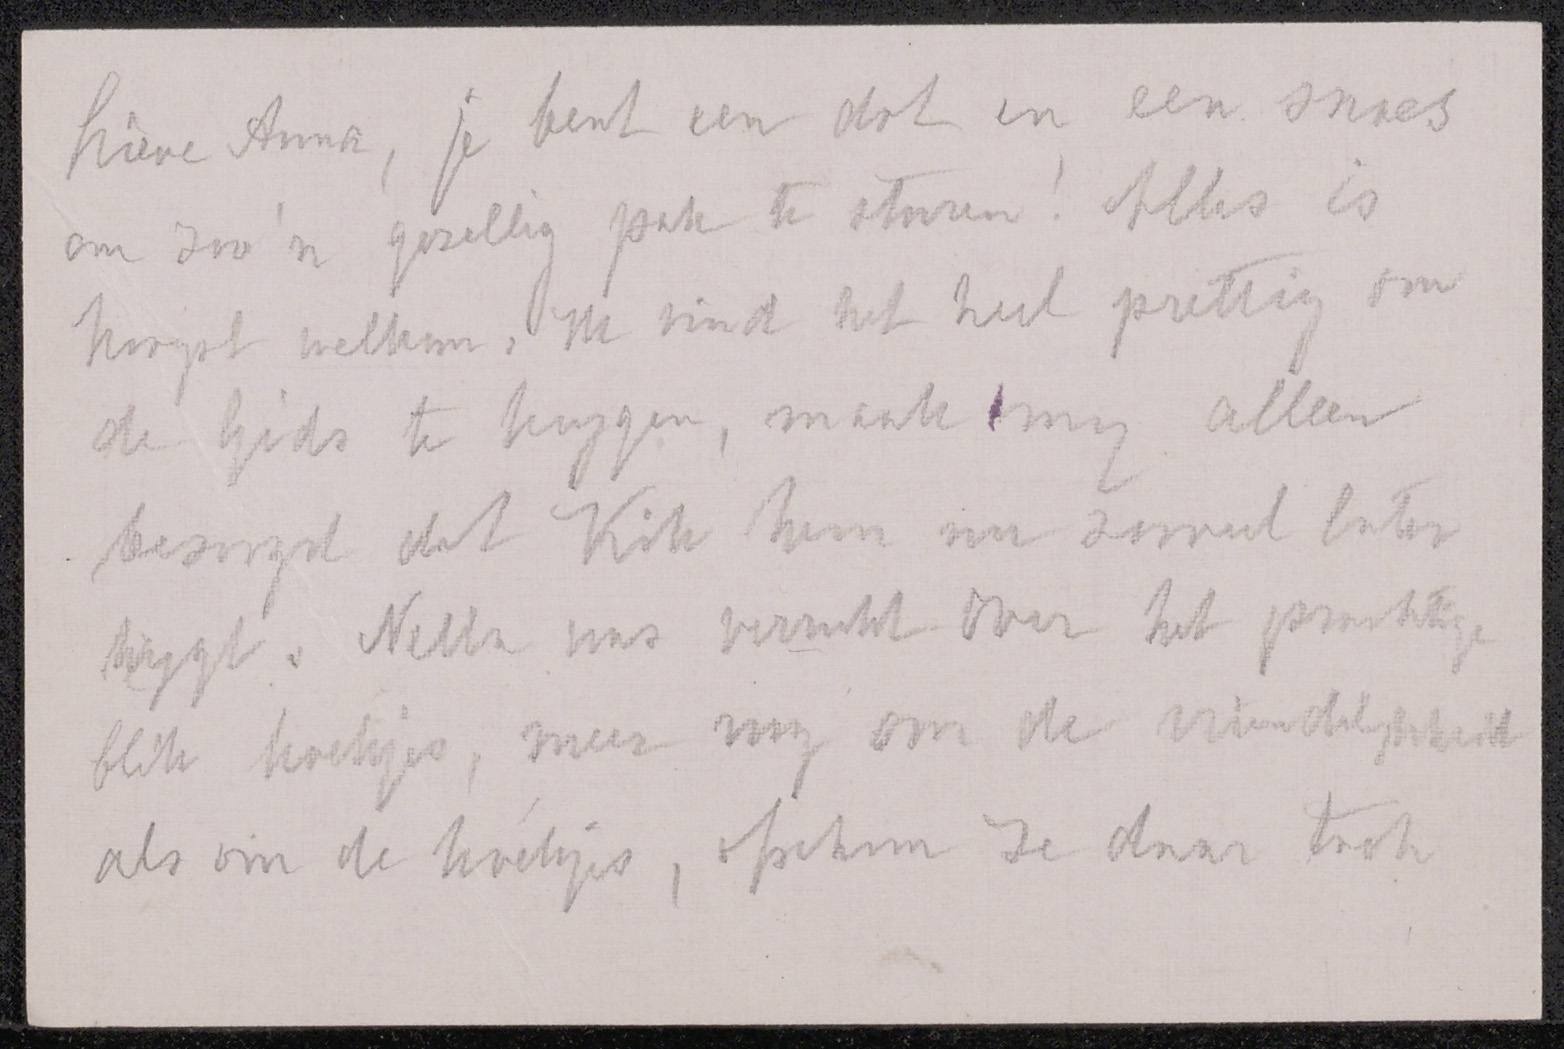 Lieve Anna, je bent een dot en een snoes
om zoo'n gezellig pak te sturen! Alles is
hoogst welkom. Ik vind het heel prettig om
de Gids te krygen, maak my alleen
bezorgd dat Kik hem nu zooveel later
krygt. Nella was verrukt over het prachtige
blik koekjes, meer nog om de vriendelykheid
als om de koekjes, ofschoon ze daar toch